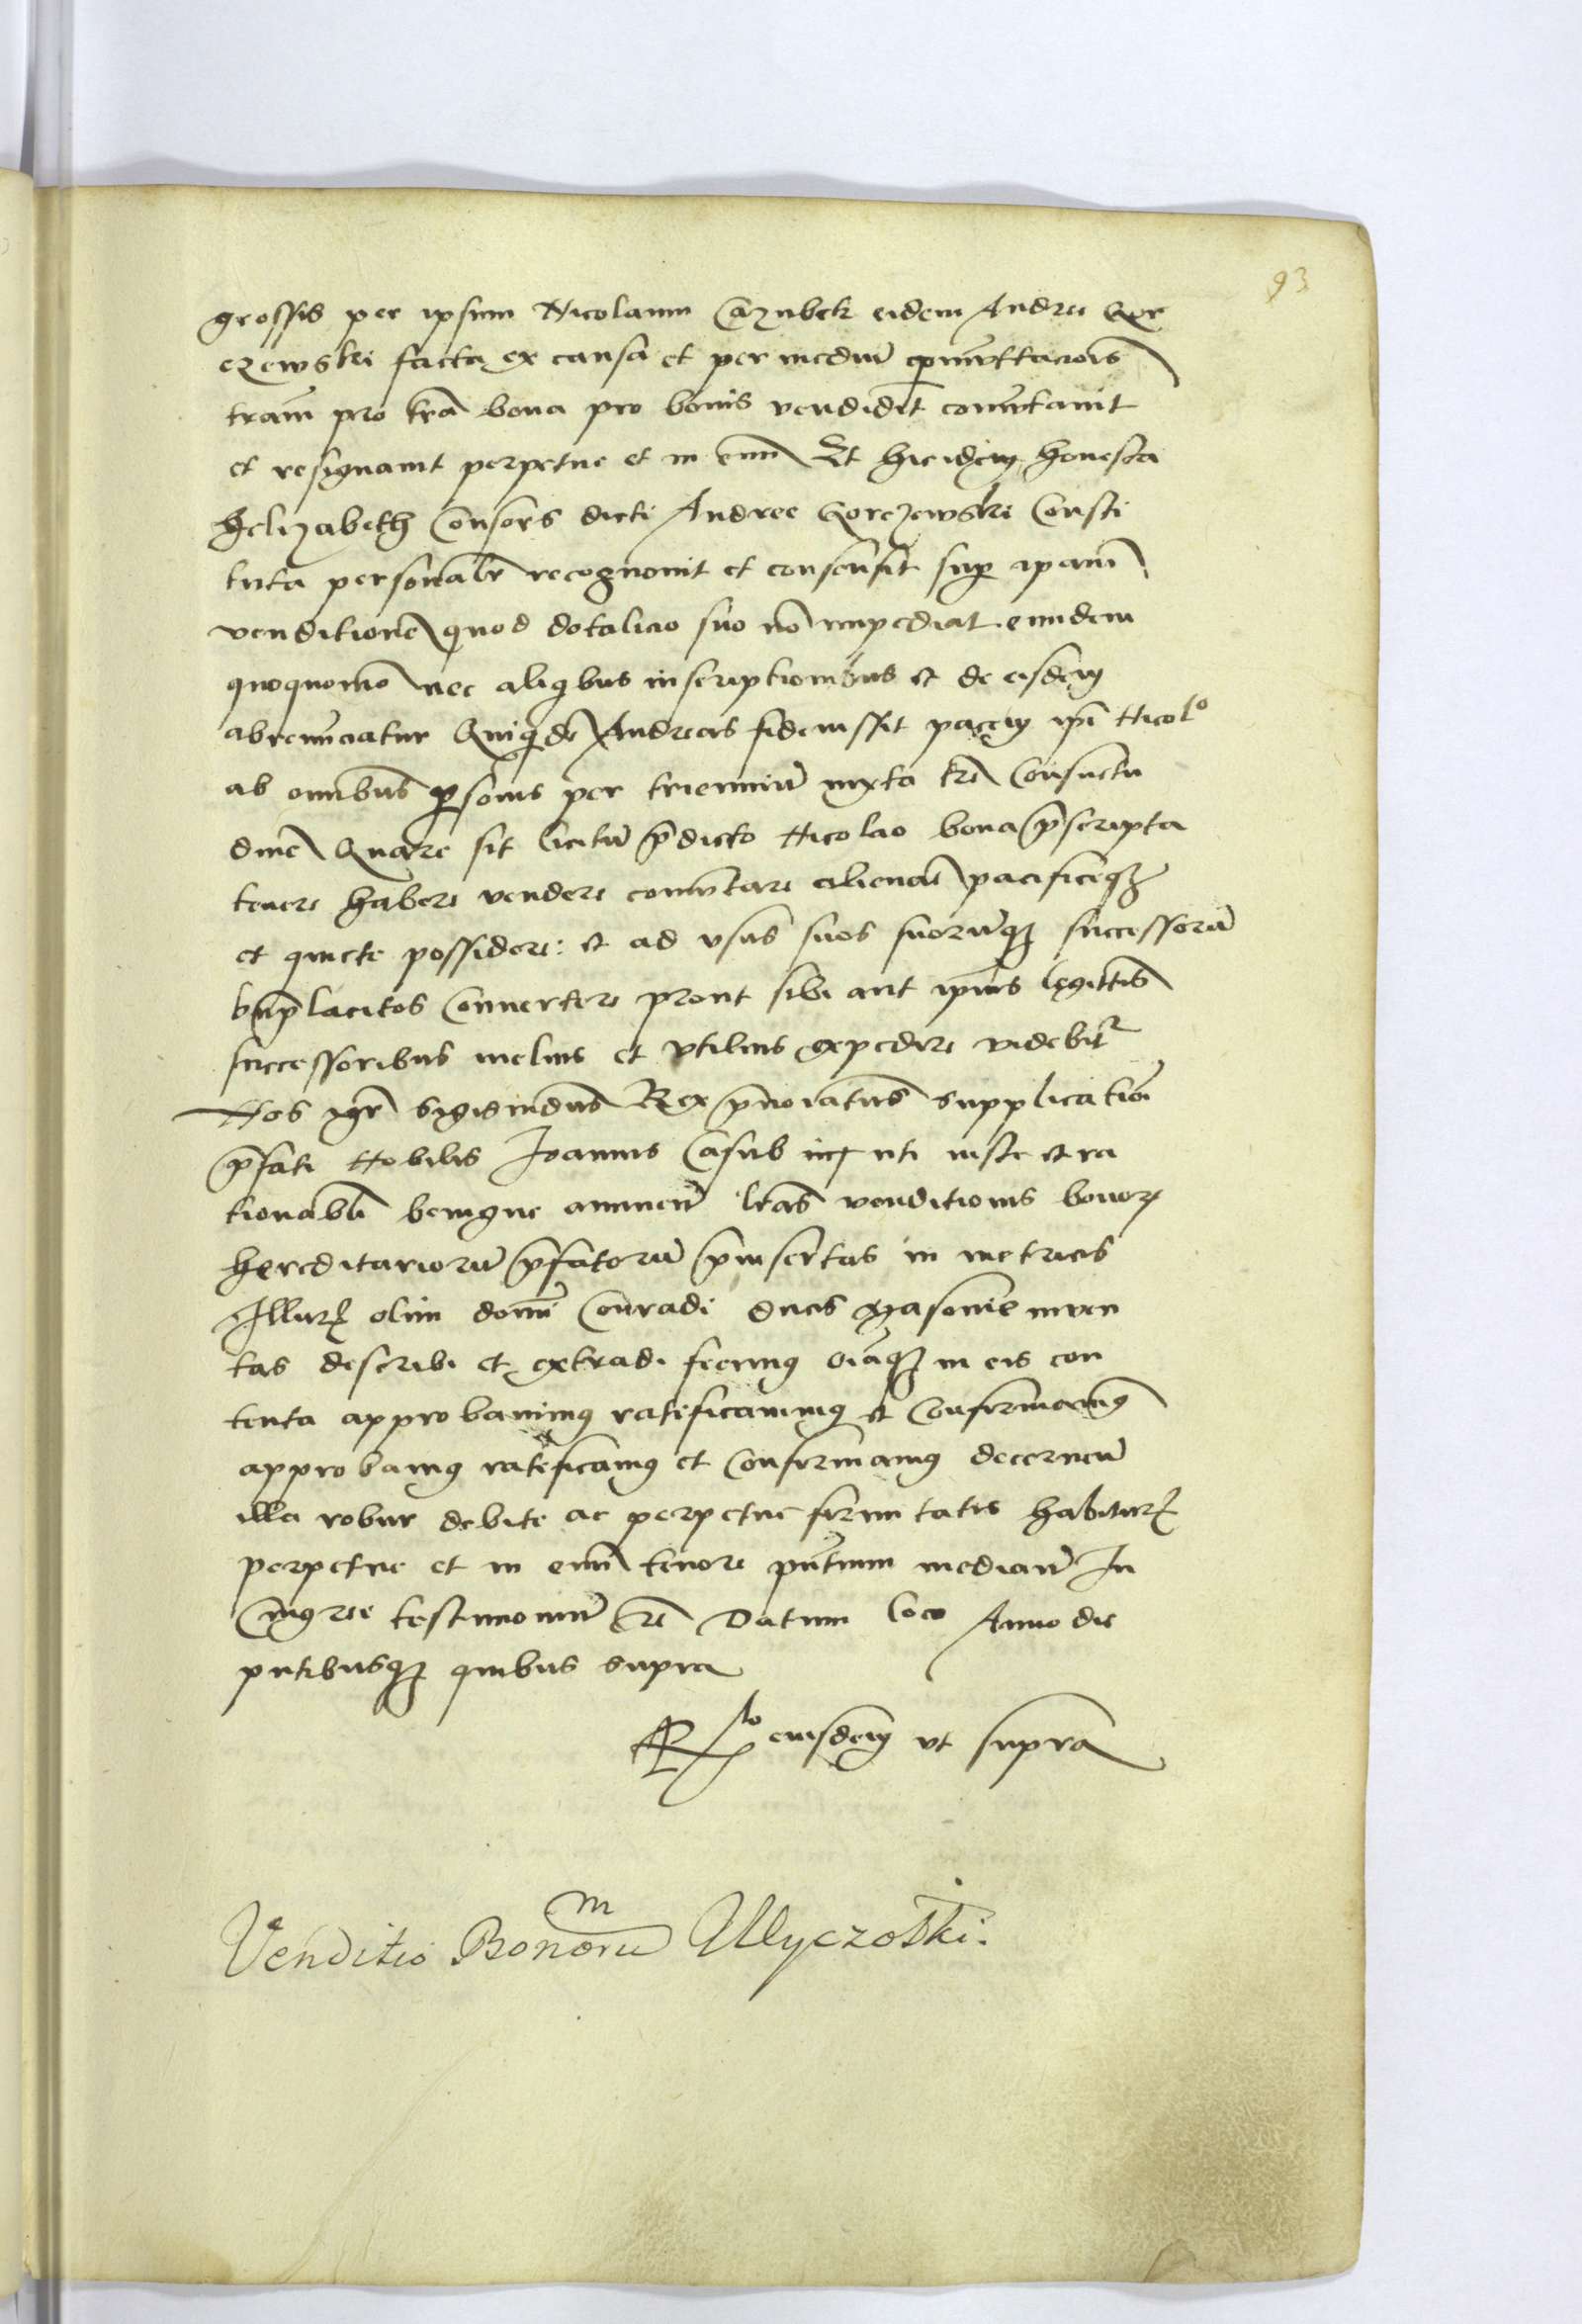 93
grossis per ipsum Nicolaum Cazubek eidem Andree Gor
czewski facta ex causa et per mediū cōmuttacōis
tram pro tra bona pro bonis vendidit comutavit
et resignavit perpetue et in evū Et hic idem honesta
helizabeth Consors dicti Andree Gorczewski Consti
tuta personalr recognovit et consensit sup ipam
venditionē quod dotalicio suo nō impediat eundem
quoquomō nec aliqbus inscriptionibus et de eisdem
abrenūciatur Quiqdē Andreas fideiussit pacem ipi Nicolo
ab omībus psonis per trienniū iuxta tre Consuetu
dinē Quare sit licitū pdicto Nicolao bona pscripta
tenere habere vendere comutare alienare pacificeq3
et quiete possidere: et ad usus suos suorūq3 successorū
bnplacitos Convertere prout sibi aut ipius legittis
successoribus melius et utilius expedire videbitr
Nos igr sigismūdus Rex pnoiatus supplicationi
pfati Nobilis Joannis Casub uti iuste et ra
tionabli benigne annuen lras venditionis bonor
hereditariorū pfatorū pinsertas in metricis
Illur olim domī Conradi ducis Masovie inven
tas describi et extradi fecimq oiaq3 in eis con
tenta approbavimq ratificavimq et Confirmavimq
approbamq ratificamq et Confirmamq decernen
illa robur debite ac perpetue firmitatis habitur
perpetue et in evū tenore pntium median In
cuiq rei testimoniū re Datum loco Anno die
pntibusq3 quibus supra
Rlo eiusdem ut supra
Venditio Bonorum Wyczolki.